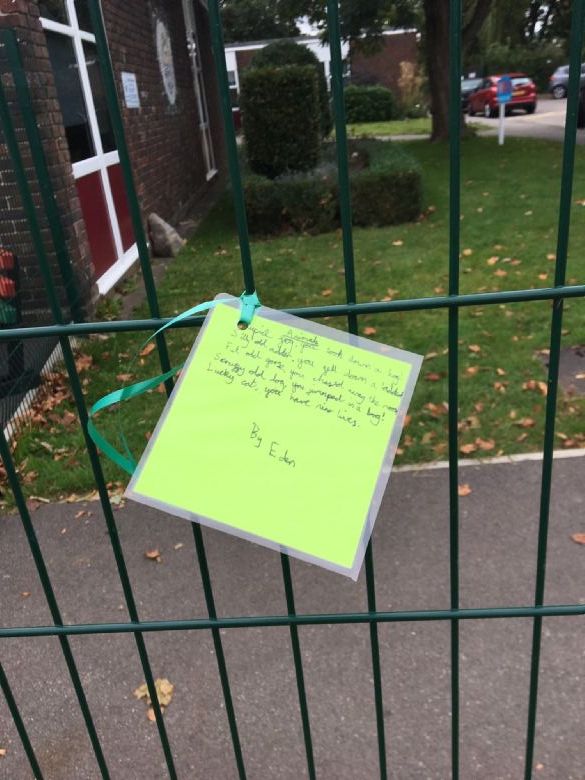 Animals
you sank down in a bog
Silly old rabbit you fell down a
Fat old goose you chased away the moose
Scruffy old dog you jumped in a bog!
Lucky cat, you have nine lives.
By Eden